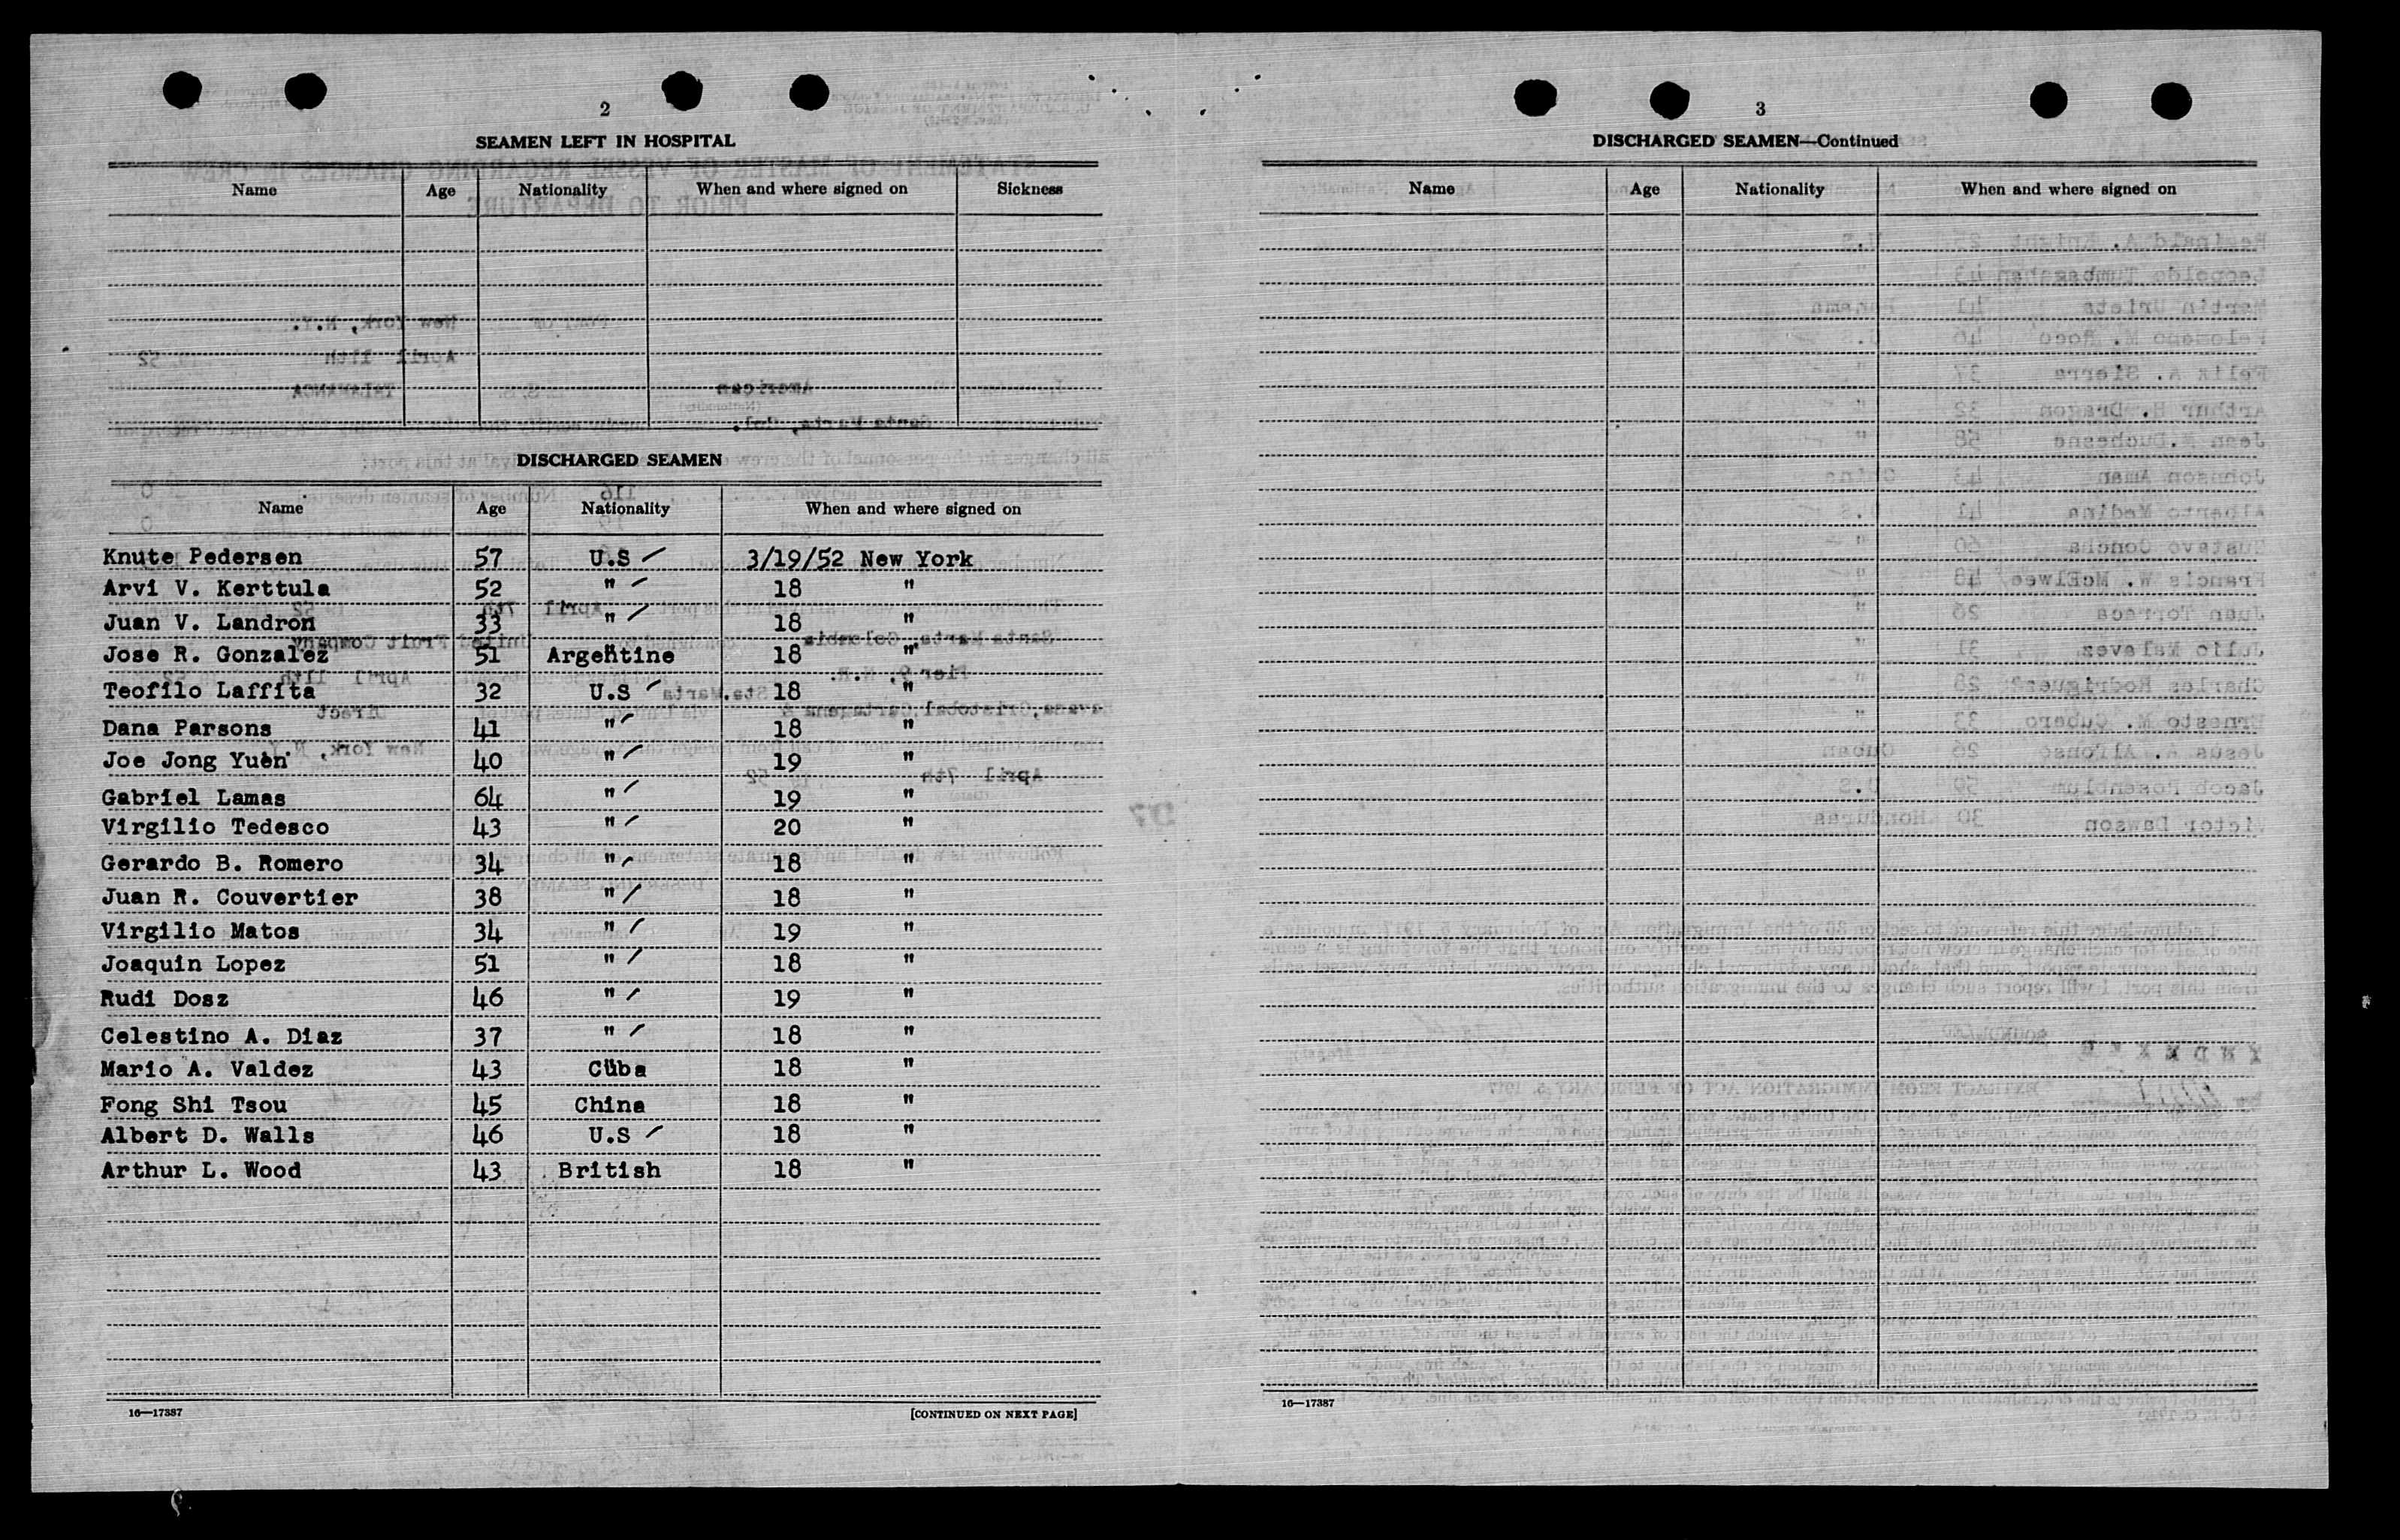 2
SEAMEN LEFT IN HOSPITAL
Name Age Nationality When and where signed on Sickness
DISCHARGED SEAMEN
Name Age Nationality When and where signed on
Knute Pedersen 57 U.S 3/19/52 New York
Arvi V. Kerttula 52 " 18 "
Juan V. Landron 33 " 18 "
Jose R. Gonzalez 51 Argentine 18 "
Teofilo Laffita 32 U.S 18 "
Dana Parsons 41 " 18 "
Joe Jong Yuen 40 " 19 "
Gabriel Lamas 64 " 19 "
Virgilio Tedesco 43 " 20 "
Gerardo B. Romero 34 " 18 "
Juan R. Couvertier 38 " 18 "
Virgilio Matos 34 " 19 "
Joaquin Lopez 51 " 18 "
Rudi Dosz 46 " 19 "
Celestino A. Diaz 37 " 18 "
Mario A. Valdez 43 Cuba 18 "
Fong Shi Tsou 45 China 18 "
Albert D. Walls 46 U.S 18 "
Arthur L. Wood 43 British 18 "
16—17387 [CONTINUED ON NEXT PAGE]
3
DISCHARGED SEAMEN—Continued
Name Age Nationality When and where signed on
16—17387